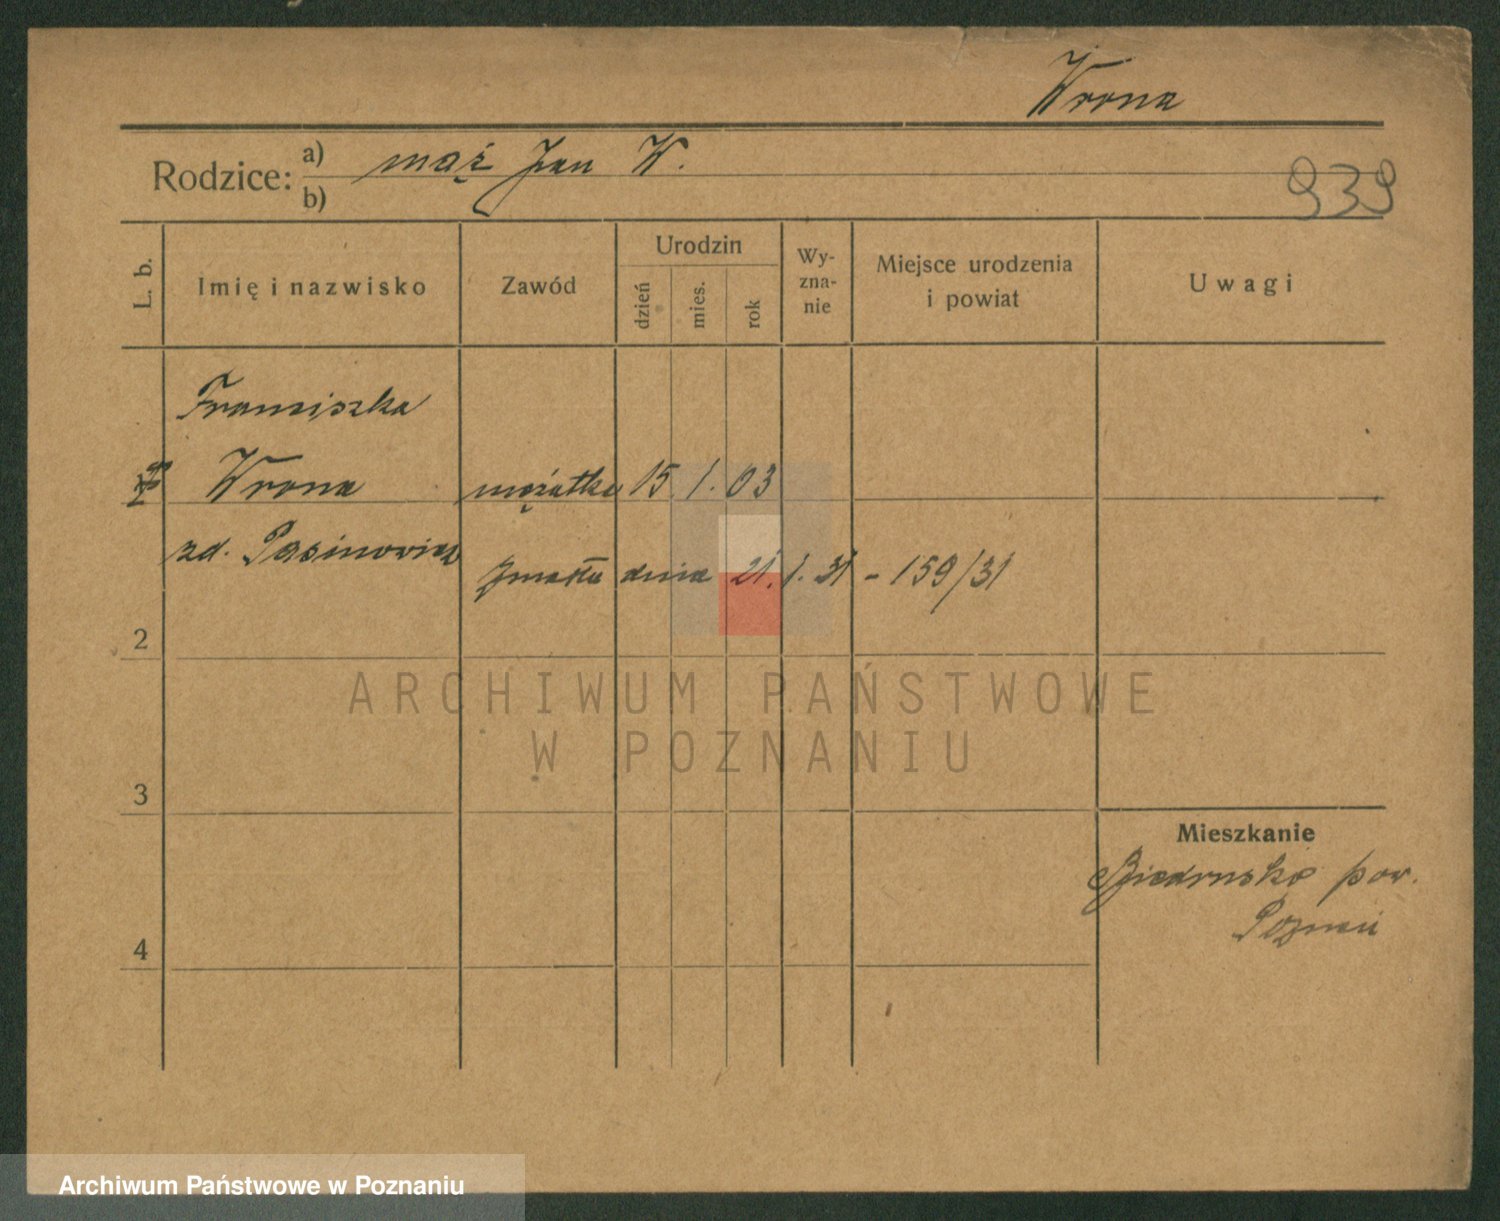 Wrona
Rodzice:
a) mąż Jan W.
b)
939
L. b.
Imię i nazwisko
Zawód
Urodzin
dzień
mies.
rok
Wy-
zna-
nie
Miejsce urodzenia
i powiat
Uwagi
Franciszka
Wrona mężatka 15 1. 03
zd. Pasinowicz
Zmarła dnia 21. 1. 31 - 159/31
2
3
4
Mieszkanie
Biedrusko pow.
Poznań
ARCHIWUM PAŃSTWOWE
W POZNANIU
Archiwum Państwowe w Poznaniu